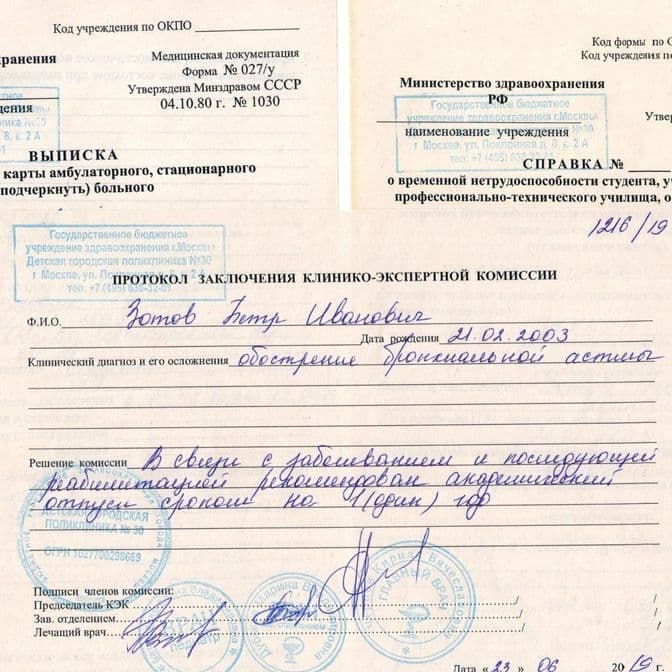 Код учреждения по ОКПО
хранения
Медицинская документация
Форма № 027/у
Утверждена Минздравом СССР
04.10.80 г. № 1030
дения
ВЫПИСКА
карты амбулаторного, стационарного
подчеркнуть) больного
Код формы по
Код учреждения по
Министерство здравоохранения
РФ
Государственное бюджетное
учреждение здравоохранения г.Москвы
наименование учреждения
г Москва, ул. Поклонная д. 8, к. 2 А
тел: +7 (495) 638-32-01
СПРАВКА №
о временной нетрудоспособности студента,
профессионально-технического училища,
1216/19
Государственное бюджетное
учреждение здравоохранения г.Москвы
Детская городская поликлиника №30
г Москва, ул. Поклонная д. 8, к. 2 А
тел: +7 (495) 638-32-01
ПРОТОКОЛ ЗАКЛЮЧЕНИЯ КЛИНИКО-ЭКСПЕРТНОЙ КОМИССИИ
Ф.И.О. Зотов Петр Иванович
Дата рождения 21.02.2003
Клинический диагноз и его осложнения обострение бронхиальной астмы
Решение комиссии В связи с заболеванием и последующей
реабилитацией рекомендован академический
отпуск сроком на 1(один) год
ДЕТСКАЯ ГОРОДСКАЯ
ПОЛИКЛИНИКА № 30
ОГРН 1027700298669
Подписи членов комиссии:
Председатель КЭК
Зав. отделением.
Лечащий врач.
ГЛАВНЫЙ ВРАЧ
Дата « 23 » 06 2019 г.